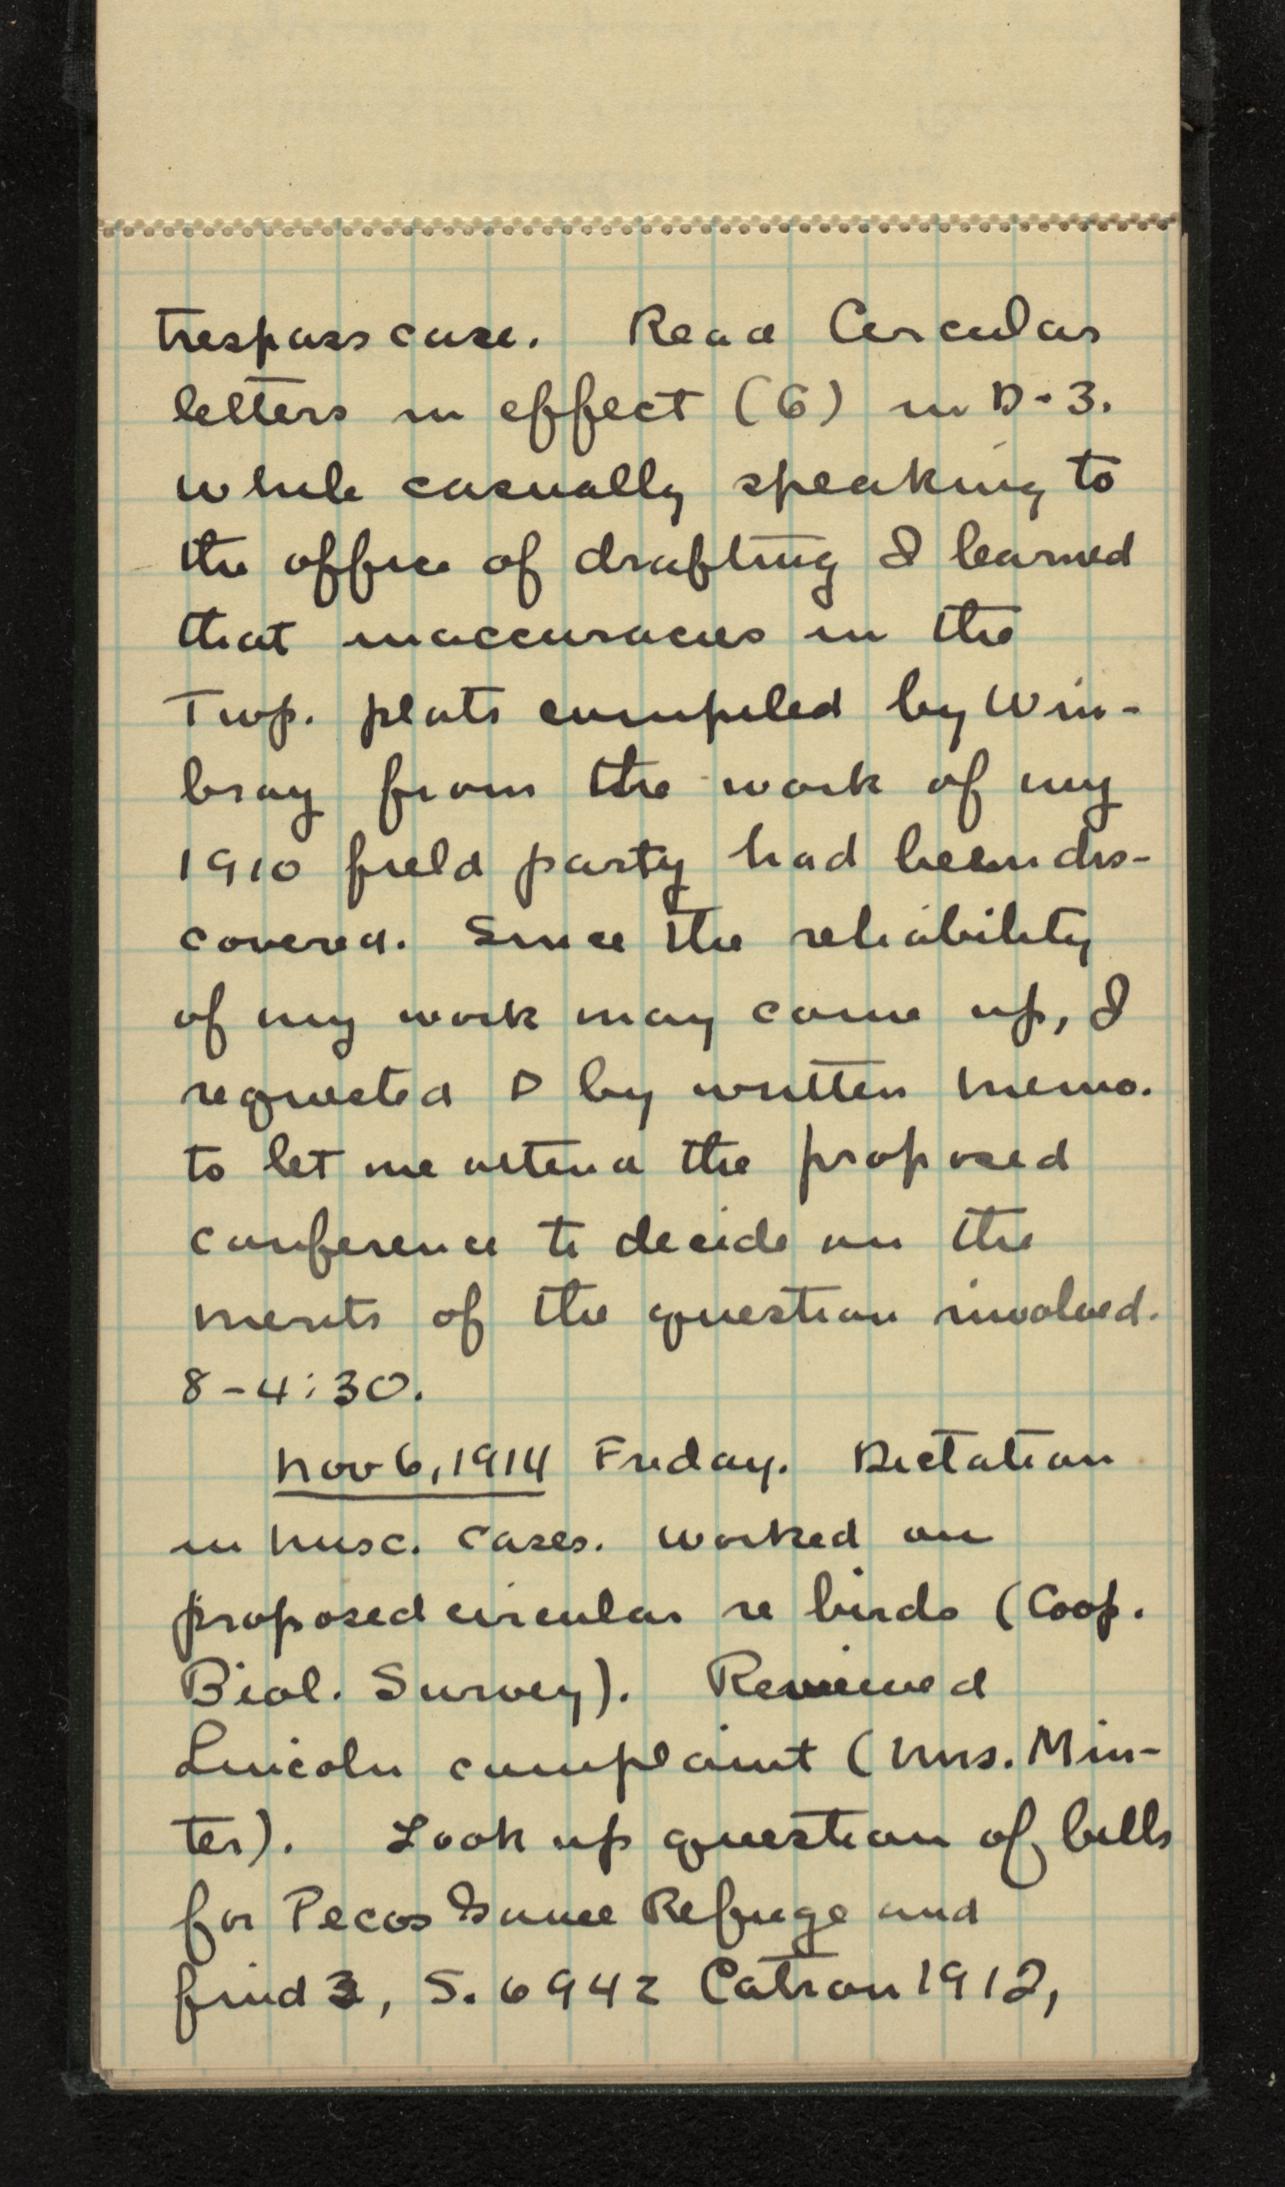 trespass case. Read Circular
letters in effect (G) in D-3.
while casually speaking to
the office of drafting I learned
that inaccuracies in the
Twp. plats compiled by Win-
bray from the work of my
1910 field party had been dis-
covered. Since the reliability
of my work may come up, I
requested D by written memo.
to let me attend the proposed
conference to decide on the
merits of the question involved.
8-4:30.
Nov 6, 1914 Friday. Dictation
in misc. cases. Worked on
proposed circular re birds (Coop.
Biol. Survey). Reviewed
Lincoln complaint (Mrs. Min-
ter). Look up question of bills
for Pecos Game Refuge and
find 3, S. 6942 Catron 1912,